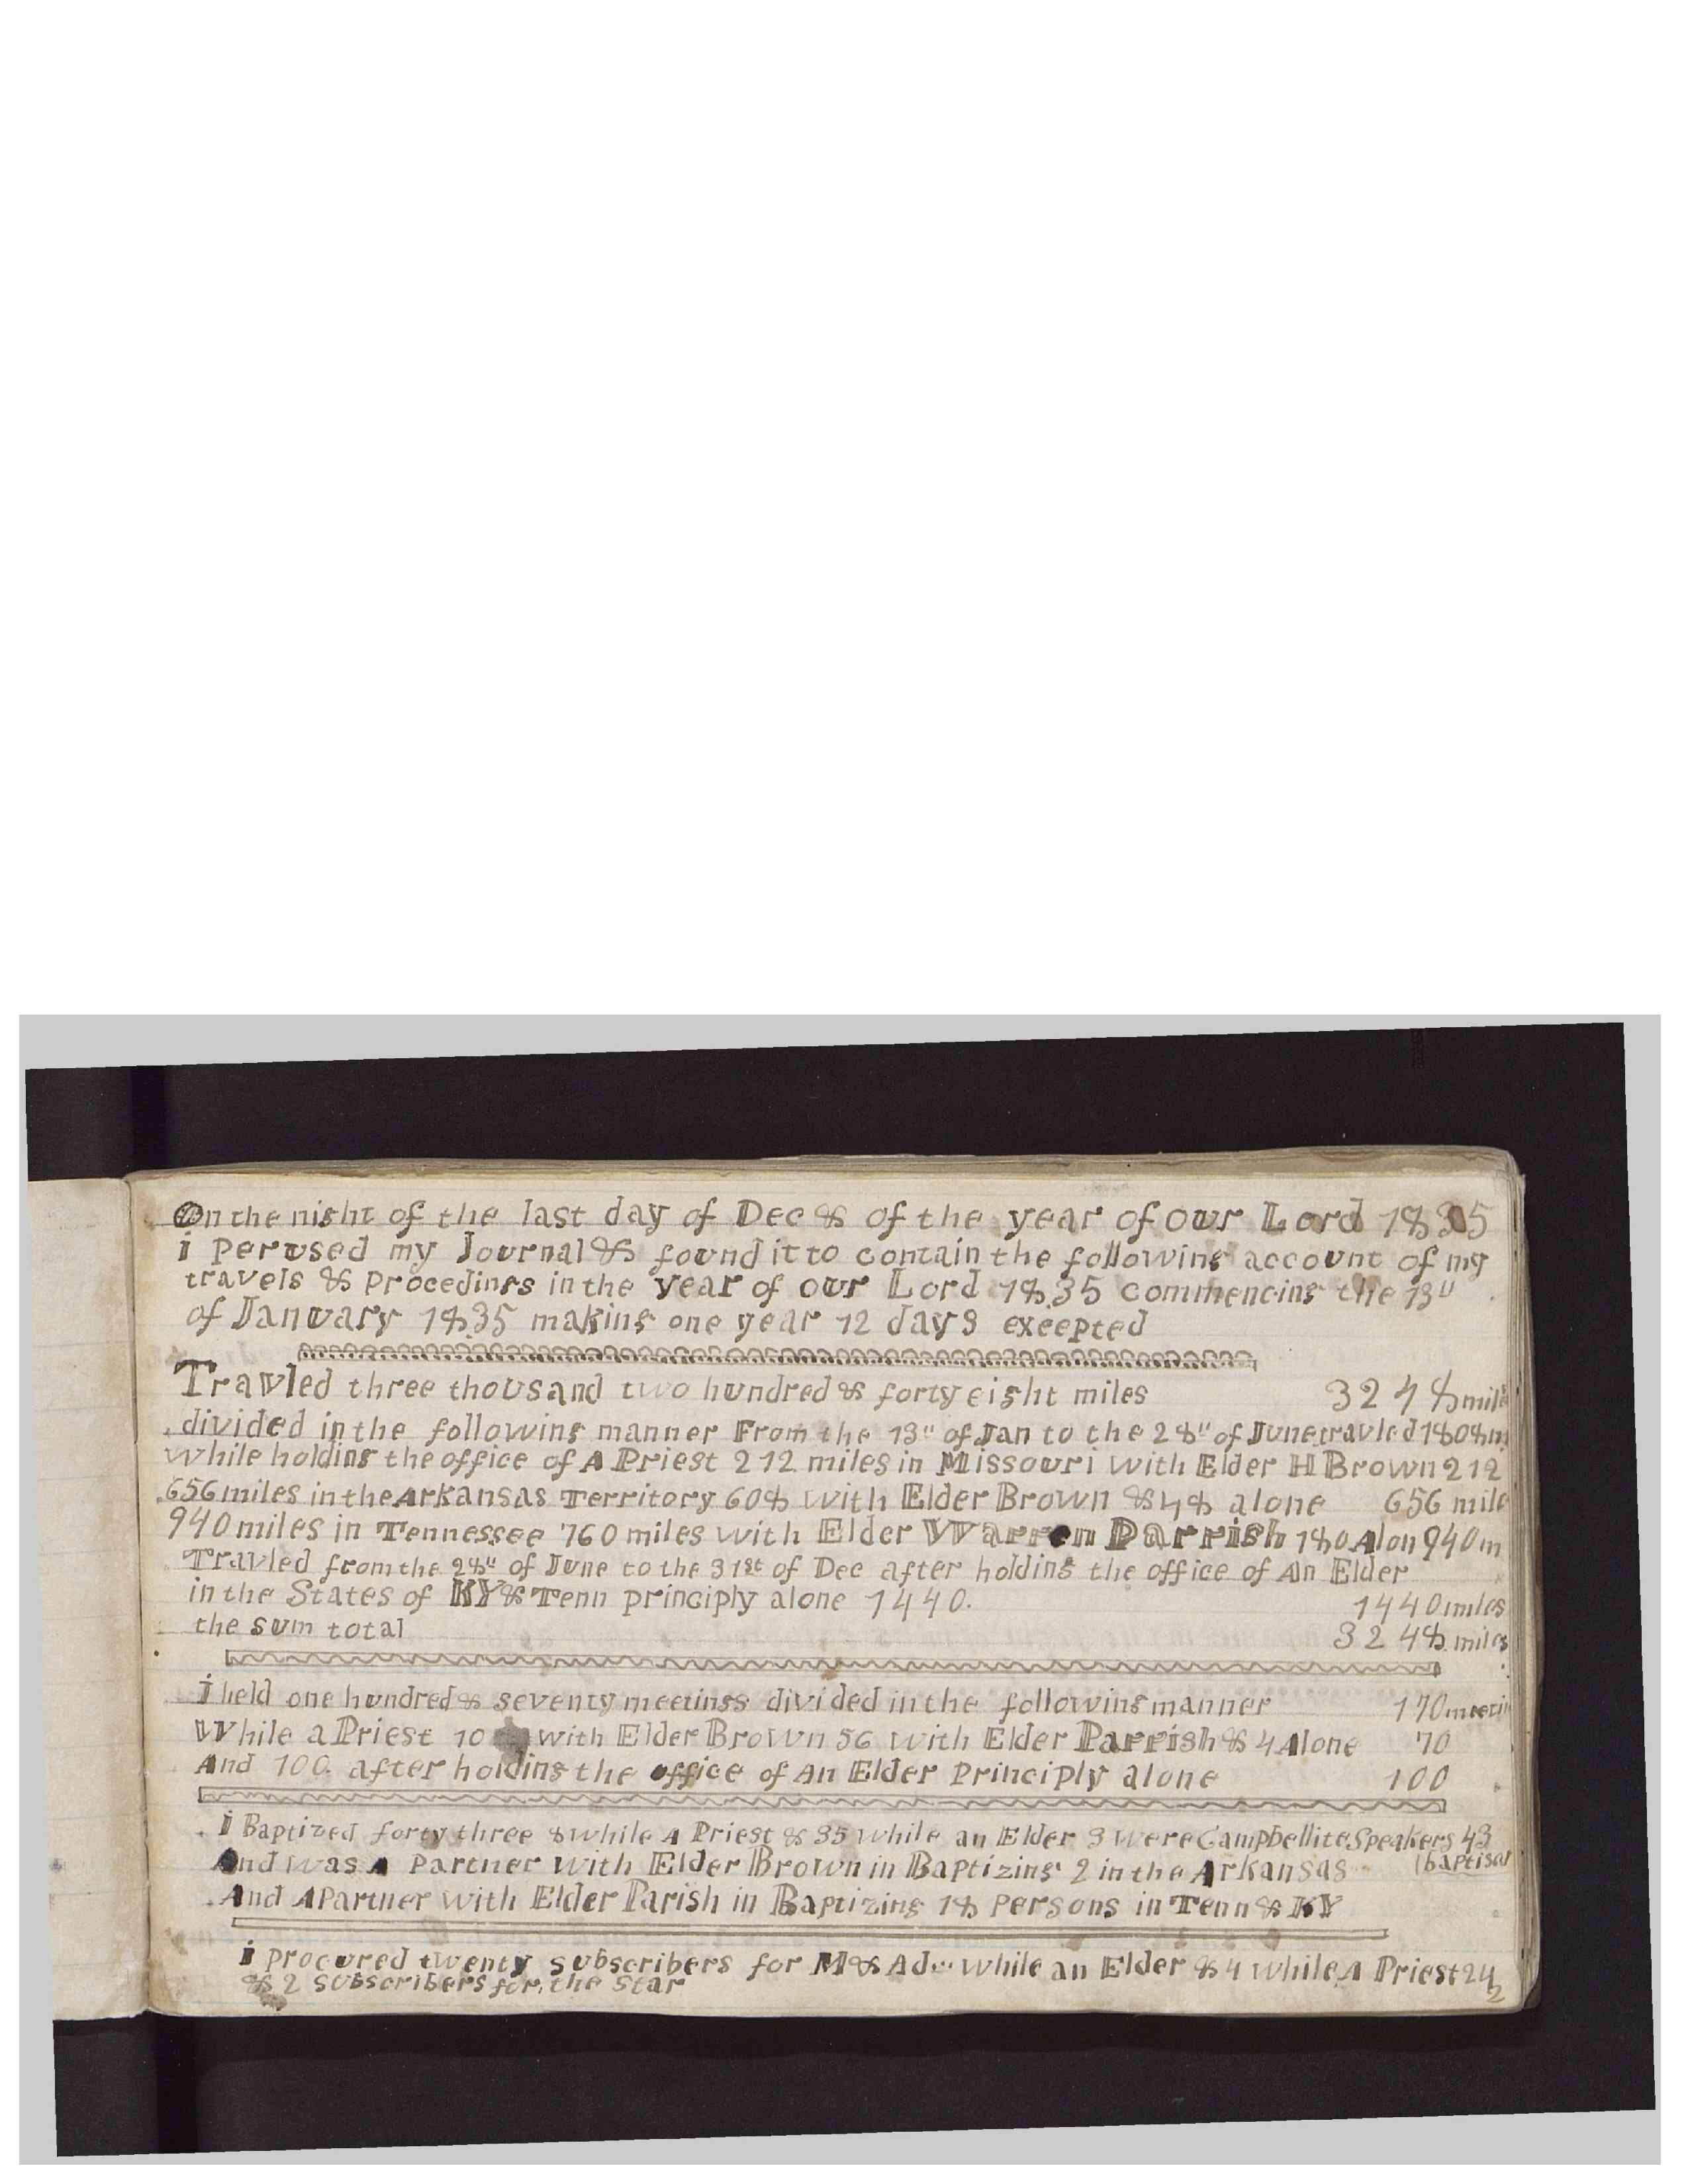 On the night of the last day of Dec & of the year of our Lord 1835
i perused my Journal & found it to contain the following account of my
travels & Procedings in the year of our Lord 1835 commencing the 13"
of January 1835 making one year 12 days excepted
Travled three thousand two hundred & forty eight miles 3248 mile
divided in the following manner From the 13" of Jan to the 28" of June travled 1808 m
While holding the office of A Priest 212 miles in Missouri with Elder H Brown 212
656 miles in the Arkansas Territory 608 with Elder Brown & 48 alone 656 mile
940 miles in Tennessee 760 miles with Elder Warren Parrish 180 Alon 940 m
Travled from the 28" of June to the 31st of Dec after holding the office of An Elder
in the States of KY & Tenn principly alone 1440. 1440 miles
the sum total 3248 miles
i held one hundred & seventy meetings divided in the following manner 170 meetin
While a Priest 10 with Elder Brown 56 with Elder Parrish & 4 Alone 70
And 100. after holding the office of An Elder Principly alone 100
i Baptized forty three 8 while A Priest & 35 while an Elder 3 were Campbellite Speakers 43
And was A Partner with Elder Brown in Baptizing 2 in the Arkansas (baptised
And A Partner with Elder Parish in Baptizing 18 Persons in Tenn & KY
i procured twenty subscribers for M & Ad.. while an Elder & 4 while A Priest 24
& 2 subscribers for, the star 2